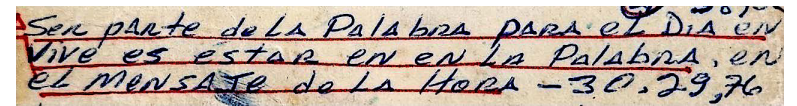 Ser parte de LA Palabra para el Dia en
vive es estar en en La Palabra, en
el mensaje de LA Hora - 30.29,76